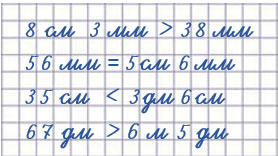 8 см 3 мм > 38 мм
56 мм = 5 см 6 мм
35 см < 3 дм 6 см
67 дм > 6 м 5 дм